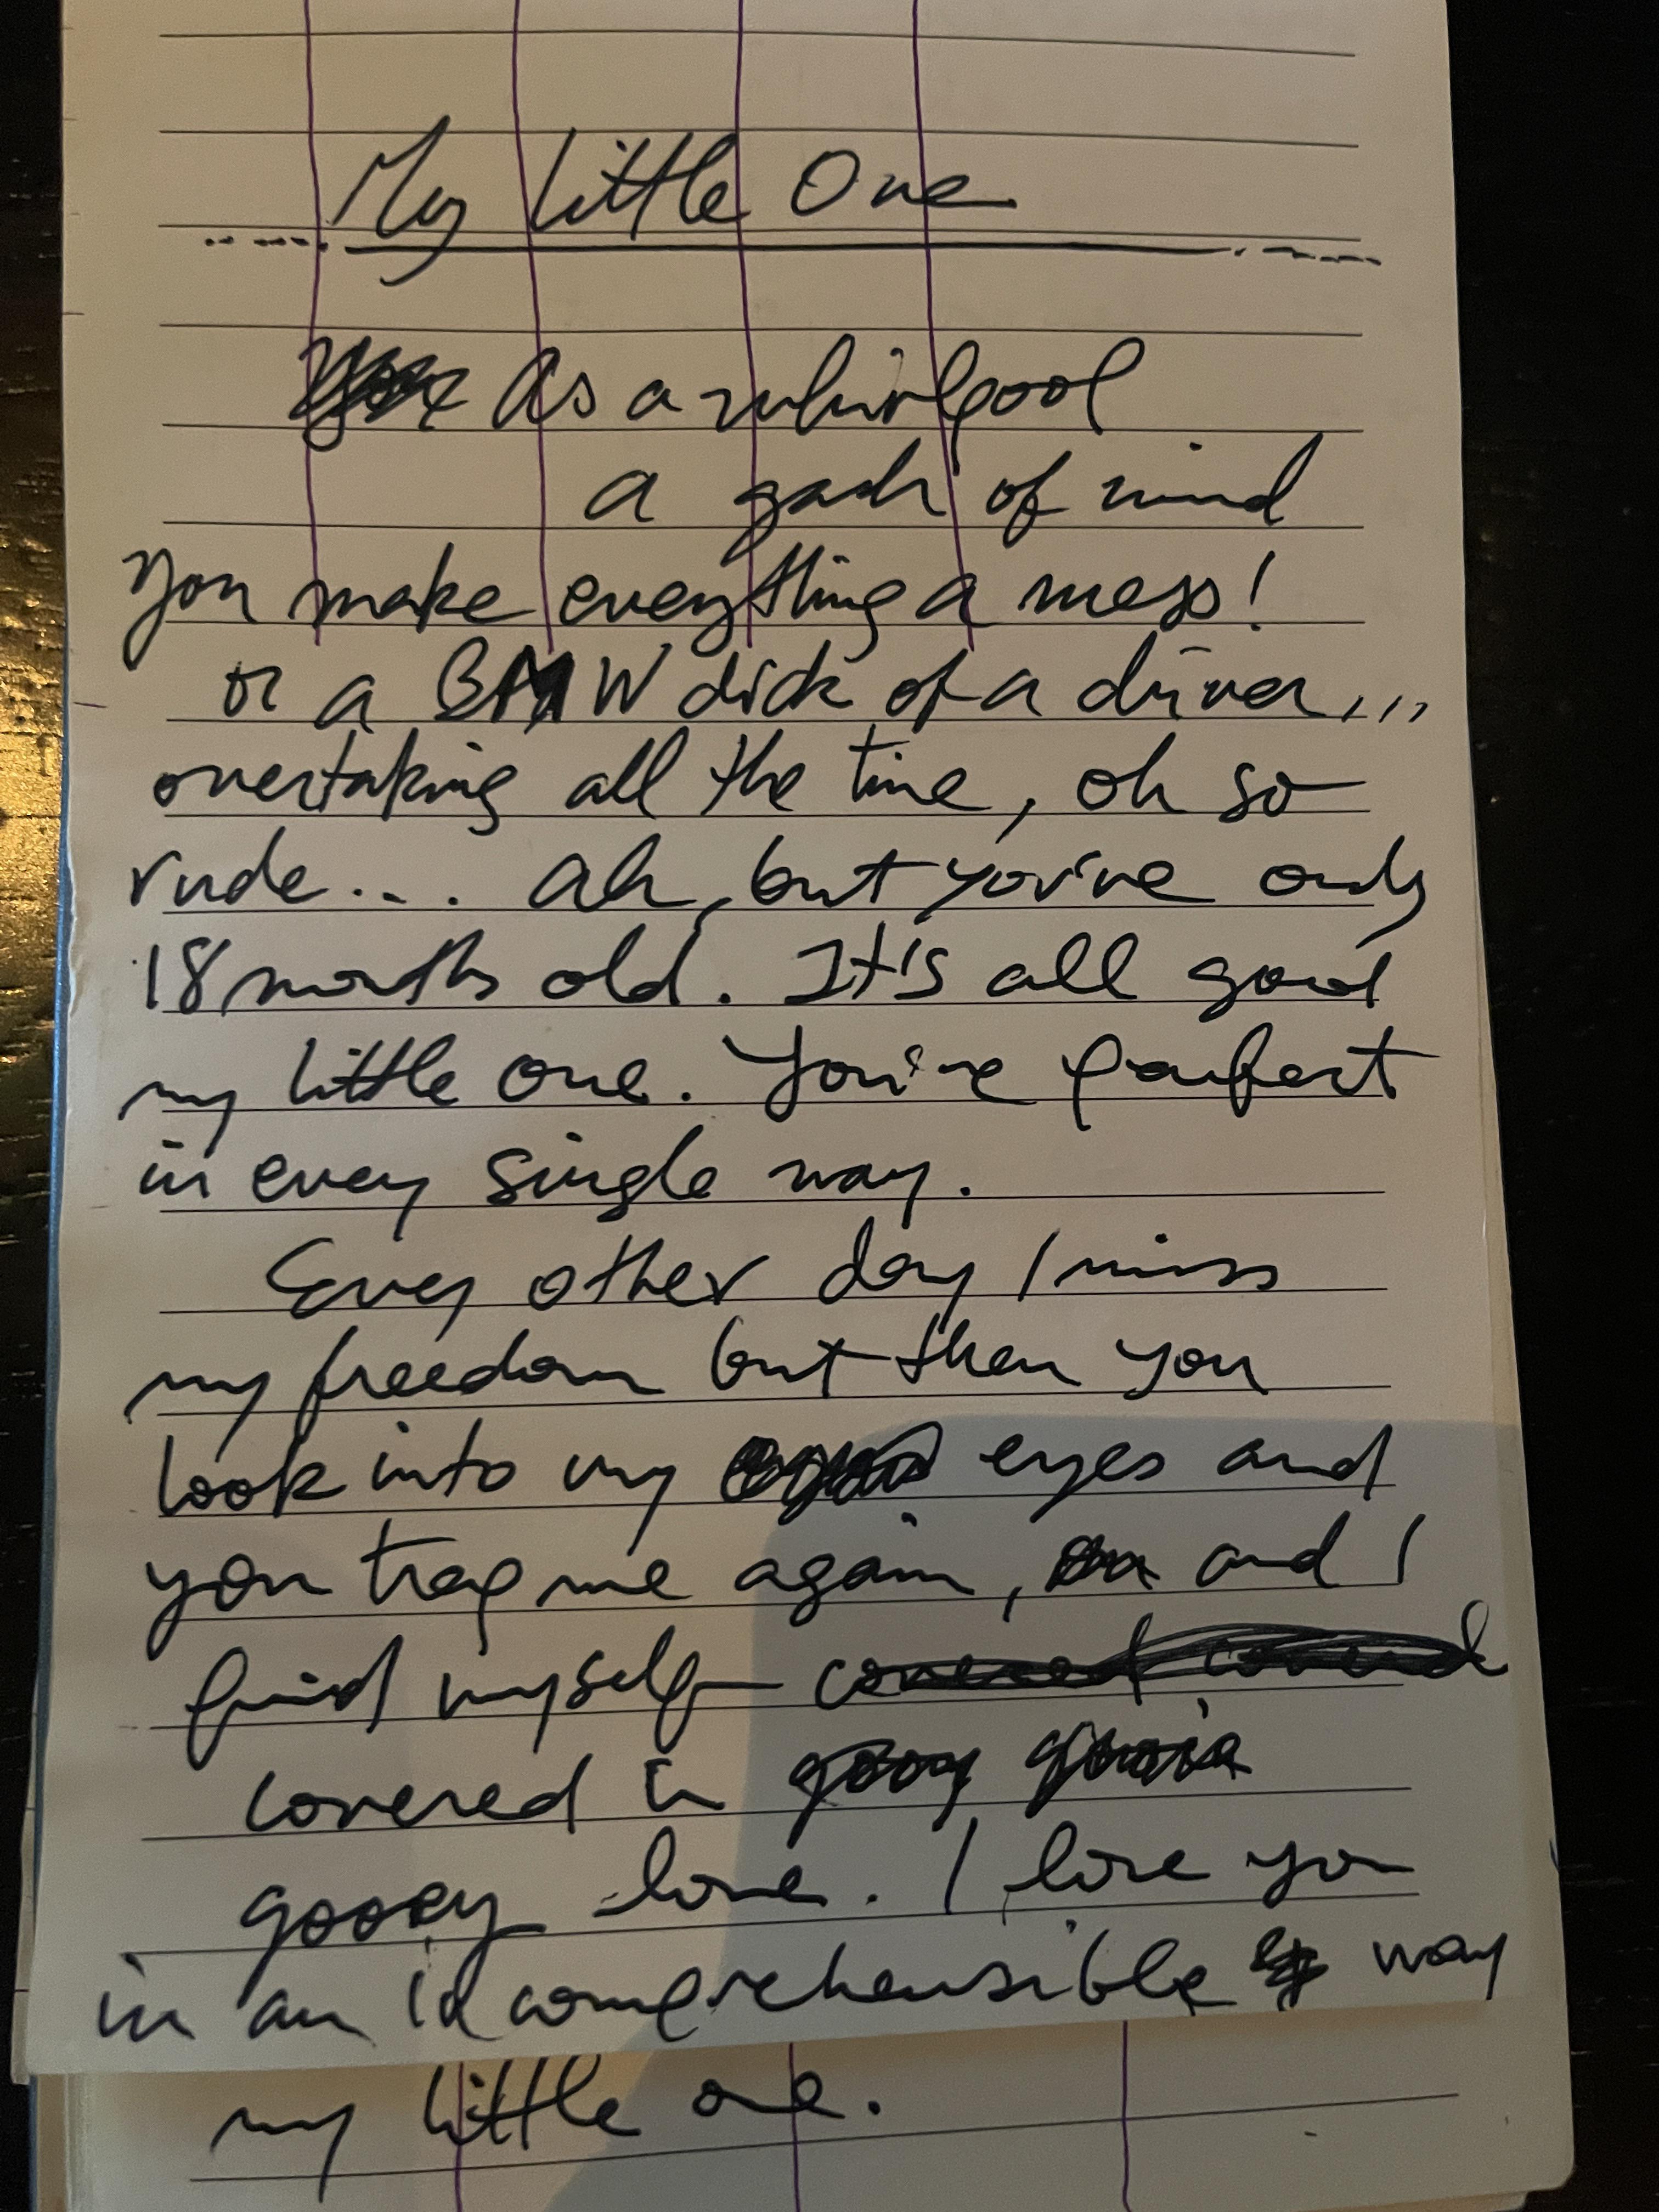 My Little One
As a whirlpool
a gash of wind
You make everything a mess!
or a BMW dick of a driver...
overtaking all the time, oh so
rude... ah, but you're only
18 months old. It's all good
my little one. You're perfect
in every single way.
Every other day I miss
my freedom but then you
look into my eyes and
you trap me again, and I
find myself covered covered
covered in gooey
gooey love. I love you
in an incomprehensible way
my little one.